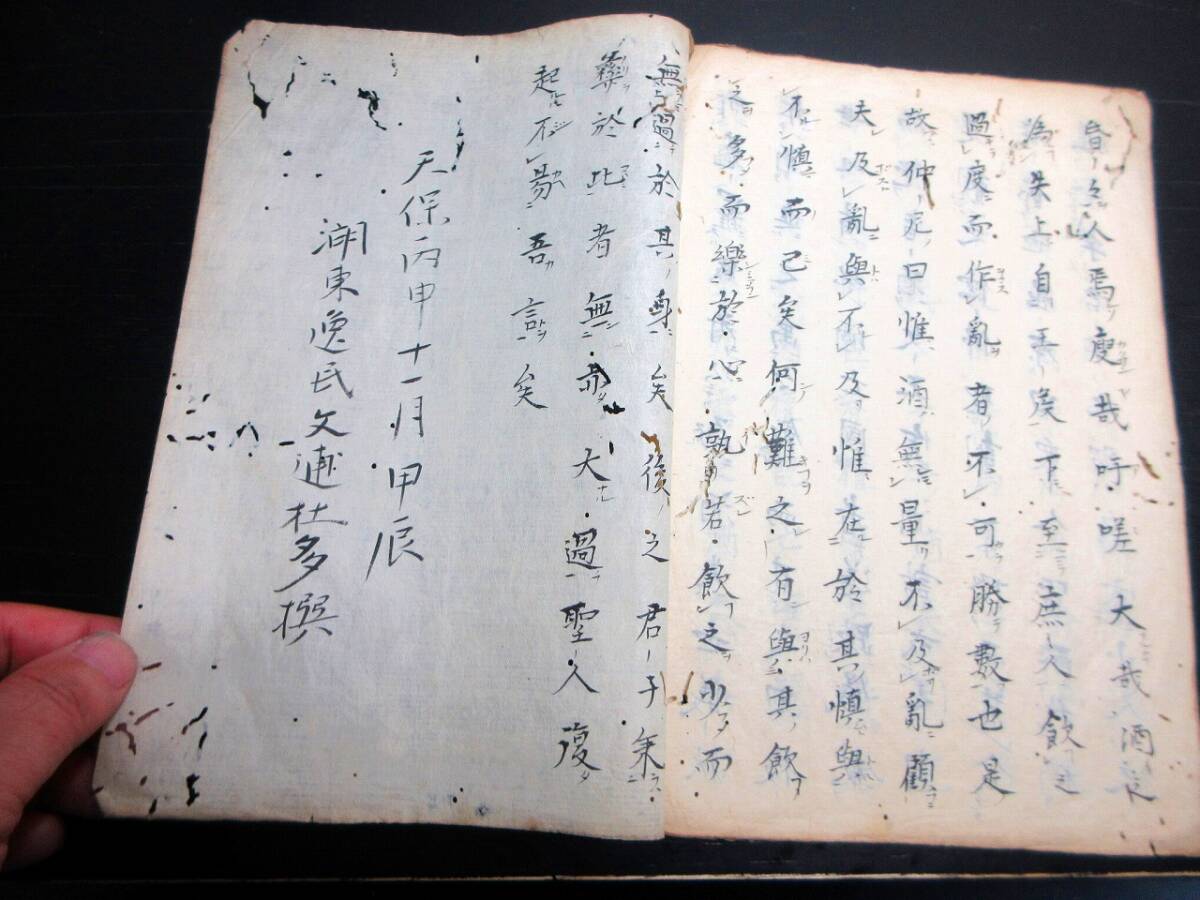 人焉廋哉吁嗟大哉酒之
為失上自王侯下至庶人飲之
過度而作亂者不可勝數也是
故仲尼曰惟酒無量不及亂顧
夫及亂與不及惟在於其慎與
不慎而已矣何難之有與其飲
之多而樂於心孰若飲之少而
無過於其身矣後之君子秉
彝於此者無亦大過聖人復
起不易吾言矣
天保丙申十一月甲辰
湖東逸民文連杜多撰